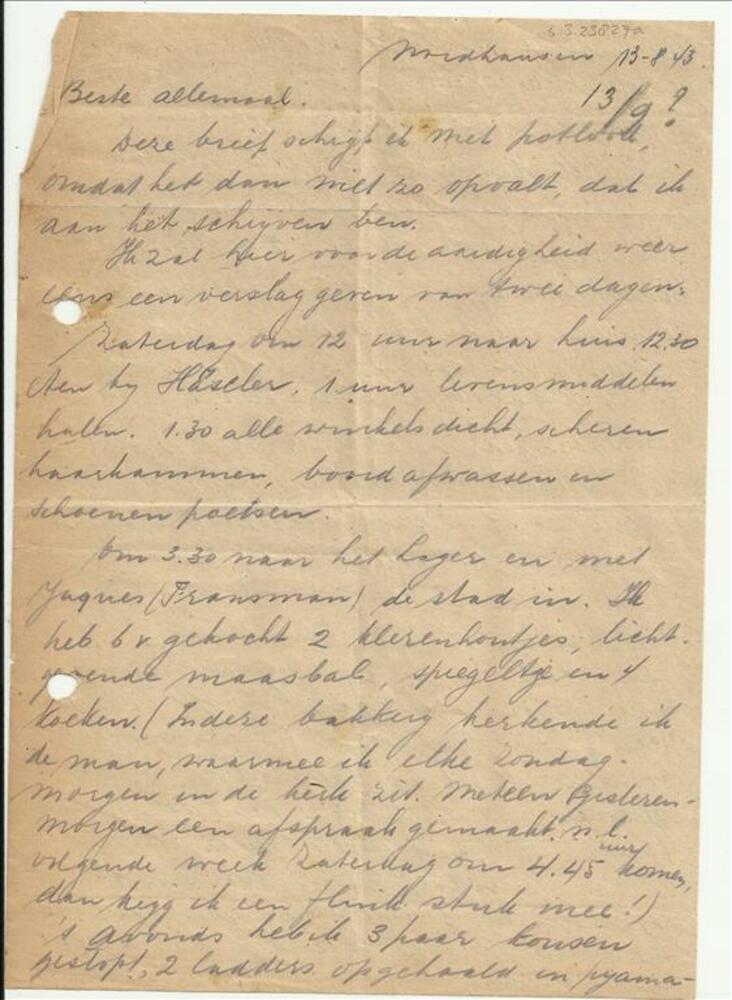 Nordhausen 13-8 43.
13/9?
Beste allemaal.
Deze brief schrijf ik met potlood,
omdat het dan niet zo opvalt, dat ik
aan het schrijven ben.
Ik zal hier voor de aardigheid weer
eens een verslag geven van twee dagen:
Zaterdag om 12 uur naar huis 12.30
eten by Häseler, 1 uur levensmiddelen
halen. 1.30 alle winkels dicht, scheren
haarkammen, boord afwassen en
schoenen poetsen.
Om 3.30 naar het Lager en met
Jaques (Fransman) de stad in. Ik
heb b.v. gekocht 2 klerenhoutjes, licht-
gevende maasbal, spiegeltje en 4
koeken. (In deze bakkerij herkende ik
de man, waarmee ik elke Zondag-
morgen in de kerk zit. Meteen gisteren-
morgen een afspraak gemaakt. n.l.
volgende week Zaterdag om 4.45 uur komen,
dan krijg ik een flink stuk mee!)
's Avonds heb ik 3 paar kousen
gestopt, 2 ladders opgehaald in pyama-